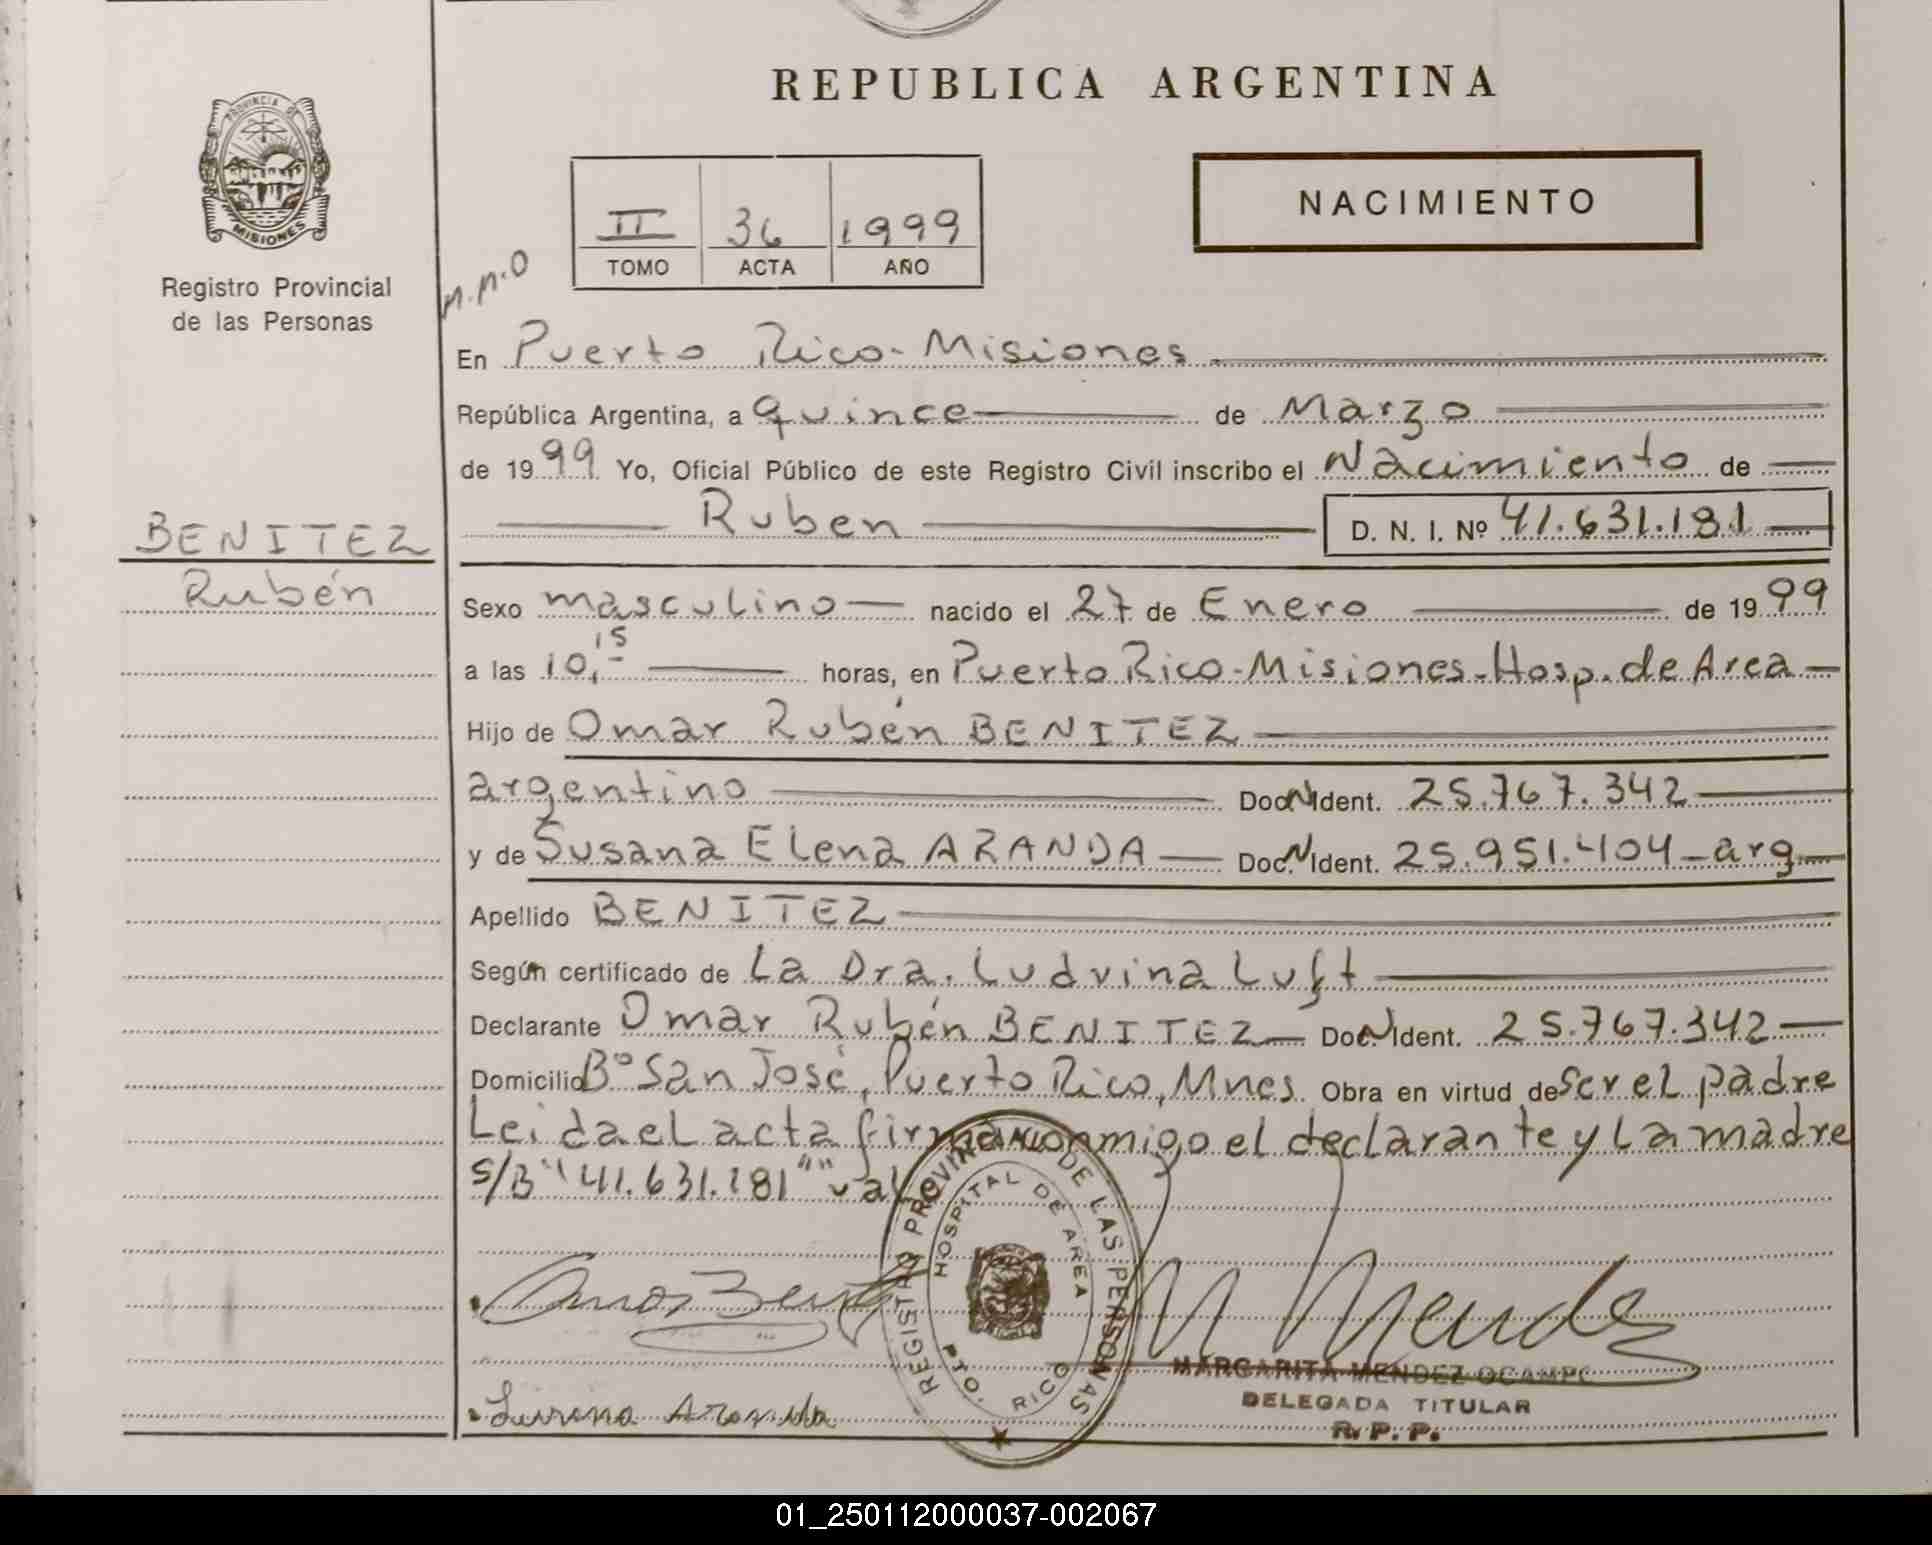 REPUBLICA ARGENTINA
PROVINCIA DE
MISIONES
Registro Provincial
de las Personas
NACIMIENTO
II 36 1999
TOMO ACTA AÑO
M.M.O
En Puerto Rico-Misiones
República Argentina, a quince de Marzo
de 1999 Yo, Oficial Público de este Registro Civil inscribo el Nacimiento de
Ruben D. N. I. Nº 41.631.181
BENITEZ
Rubén
Sexo masculino nacido el 27 de Enero de 1999
a las 10,15 horas, en Puerto Rico-Misiones-Hosp. de Area
Hijo de Omar Rubén BENITEZ
argentino Doc N Ident. 25.767.342
y de Susana Elena ARANDA Doc. N Ident. 25.951.404-arg
Apellido BENITEZ
Según certificado de La Dra. Ludvina Luft
Declarante Omar Rubén BENITEZ Doc. N Ident. 25.767.342
Domicilio Bº San José, Puerto Rico, Mnes. Obra en virtud de ser el padre
Leida el acta firman conmigo el declarante y la madre
S/B "41.631.181" vale
REGISTRO PROVINCIAL DE LAS PERSONAS
HOSPITAL DE AREA
PTO. RICO
MARGARITA MENDEZ OCAMPO
DELEGADA TITULAR
R. P. P.
Susana Aranda
01_250112000037-002067